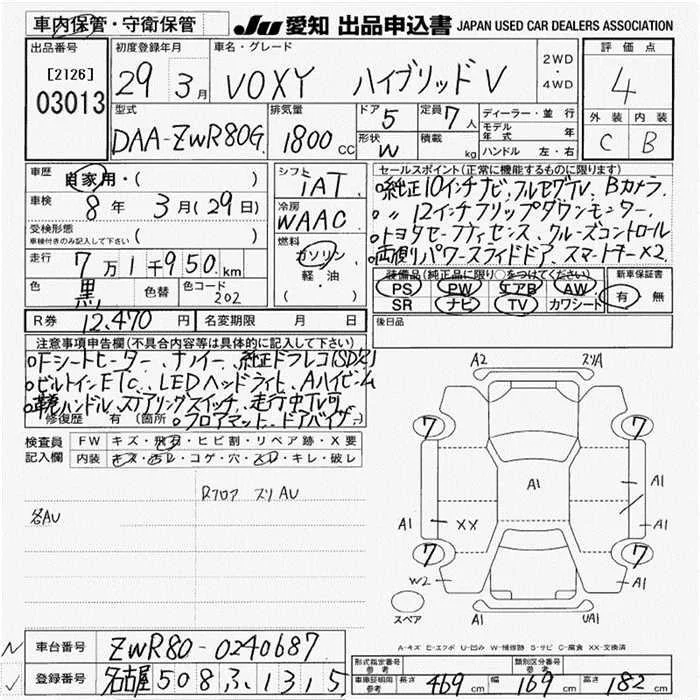 車内保管・守衛保管
JU 愛知 出品申込書 JAPAN USED CAR DEALERS ASSOCIATION
出品番号
[2126]
03013
初度登録年月
29年 3月
車名・グレード
VOXY ハイブリッド V
2WD
・
4WD
評価点
4
外装 内装
C B
型式
DAA-ZWR80G
排気量
1800 CC
ドア 5
形状 W
定員 7人
積載 kg
ディーラー・並行
モデル年式 年
ハンドル 左・右
車歴
自家用・( )
車検
8年 3月(29日)
受検形態
車検付きのみ記入して下さい ( )
走行
7万1千950km
色
黒
色替
色コード
202
シフト
IAT
冷房
WAAC
燃料
ガソリン
・
軽・油
( )
セールスポイント(正常に機能するものに限ります)
○純正10インチナビ、フルセグTV、Bカメラ
○〃12インチフリップダウンモニター
○トヨタセーフティセンス、クルーズコントロール
○両側パワースライドドア、スマートキー×2
装備品(純正品に限り○をつけてください)
PS PW エアB AW
SR ナビ TV カワシート
新車保証書
有・無
後日品
R券 12,470円
名変期限 月 日
注意事項申告欄(不具合内容等は具体的に記入して下さい)
○Fシートヒーター、ナノイー、純正ドラレコ(SD欠)
○ビルトインETC、LEDヘッドライト、Aハイビーム
○革巻ハンドル、ステアリングスイッチ、走行中TV可
修復歴 有 (箇所
○フロアマット、ドアバイザー
検査員
記入欄
FW キズ・飛石・ヒビ割・リペア跡・X要
内装 キズ・汚レ・コゲ・穴・スレ・キレ・破レ
Rフロア スリAU
各AU
A2 スリA
7 7
A1
A1
A1 XX A1
7 7
W2 A1
スペア
A1 UA1
A-キズ E-エクボ U-凹み W-補修跡 S-サビ C-腐食 XX-交換済
車台番号
ZWR80-0240687
登録番号
名古屋 508 ふ 1315
形式指定番号
参考
類別区分番号
参考
車庫証明用
参考
長さ 469cm 幅 169cm 高さ 182cm